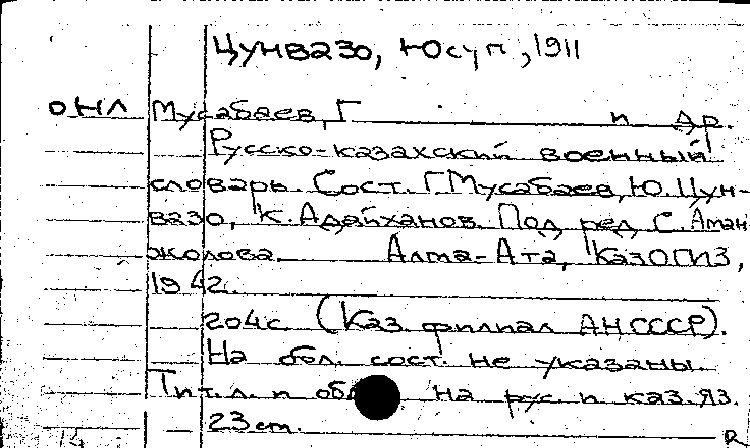 Цунвазо, Юсуп, 1911
ОНЛ Мусабаев, Г. и др.
Русско-казахский военный
словарь. Сост. Г. Мусабаев, Ю. Цун-
вазо, К. Адайханов. Под ред. С. Аман
жолова. Алма-Ата, КазОГИЗ,
1942.
204с. (Каз. филиал АН СССР).
На обл. сост. не указаны.
Тит. л. и обл. на рус. и каз. яз.
23 cm.